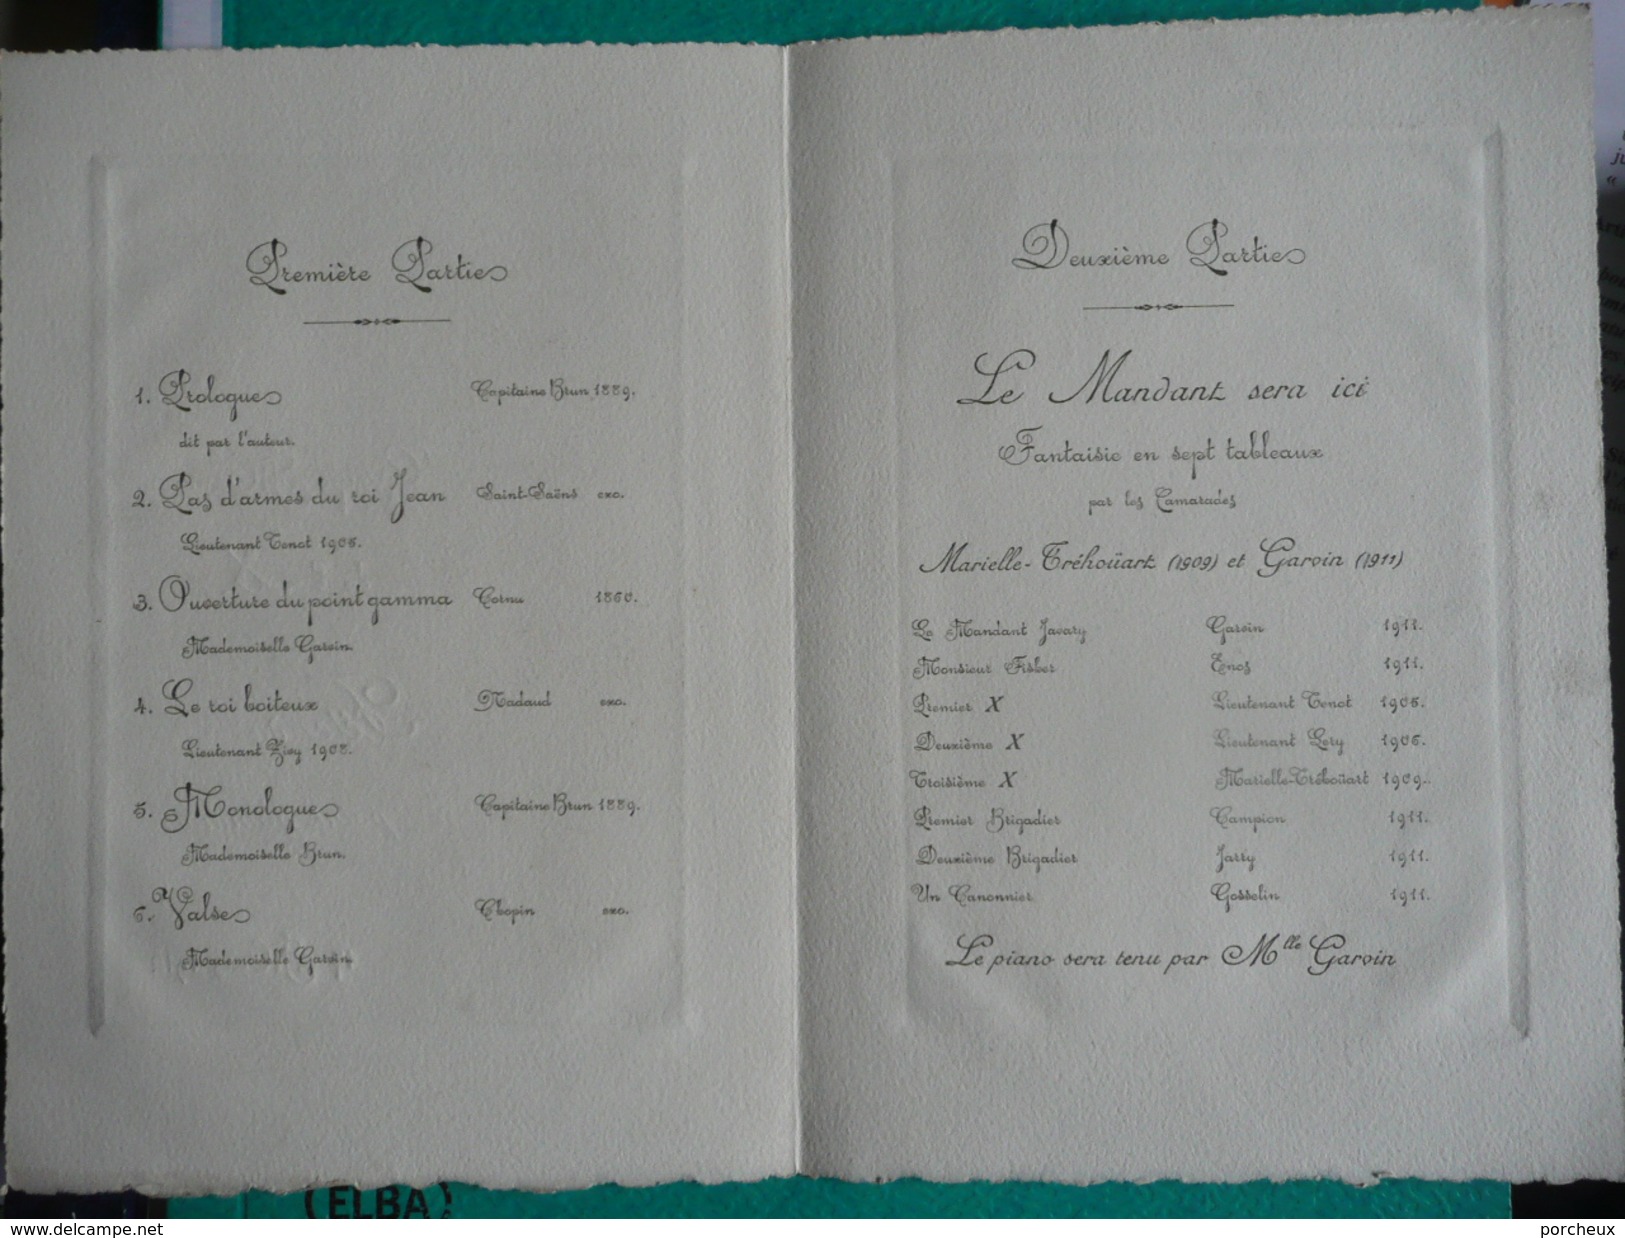 Première Partie
1. Prologue Capitaine Brun 1889.
dit par l'auteur.
2. Pas d'armes du roi Jean Saint-Saëns exc.
Lieutenant Tenot 1905.
3. Ouverture du point gamma Cornu 1860.
Mademoiselle Garvin.
4. Le roi boiteux Nadaud exc.
Lieutenant Ziey 1908.
5. Monologue Capitaine Brun 1889.
Mademoiselle Brun.
6. Valse Chopin exc.
Mademoiselle Garvin.
Deuxième Partie
Le Mandant sera ici
Fantaisie en sept tableaux
par les Camarades
Marielle-Tréhoüart (1909) et Garvin (1911)
Le Mandant Javary Garvin 1911.
Monsieur Fisher Enos 1911.
Premier X Lieutenant Tenot 1905.
Deuxième X Lieutenant Lery 1906.
Troisième X Marielle-Tréhoüart 1909.
Premier Brigadier Campion 1911.
Deuxième Brigadier Jarry 1911.
Un Canonnier Gosselin 1911.
Le piano sera tenu par Mlle Garvin
(ELBA)
www.delcampe.net
porcheux